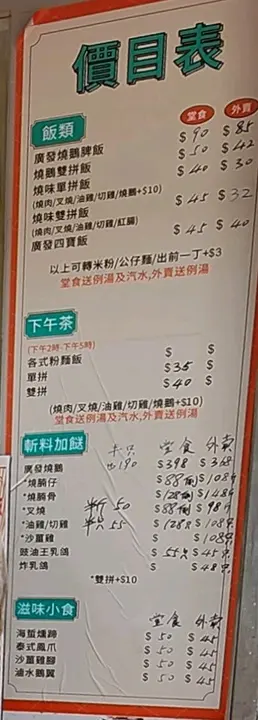 價目表
堂食 外賣
飯類
廣發燒鵝脾飯 $90 $85
燒鵝雙拼飯 $50 $42
燒味單拼飯 $40 $30
(燒肉/叉燒/油雞/切雞/燒鵝+$10)
燒味雙拼飯 $45 $32
(燒肉/叉燒/油雞/切雞/紅腸)
廣發四寶飯 $45 $40
以上可轉米粉/公仔麵/出前一丁+$3
堂食送例湯及汽水,外賣送例湯
下午茶
(下午2時-下午5時)
各式粉麵飯 $ $
單拼 $35 $
雙拼 $40 $
(燒肉/叉燒/油雞/切雞/燒鵝+$10)
堂食送例湯及汽水,外賣送例湯
斬料加餸 半只 堂食 外賣
廣發燒鵝 190 $398 $368
*燒腩仔 $88例 $108斤
*燒腩骨 $128例 $148斤
*叉燒 半斤50 $88例 $98斤
*油雞/切雞 半只55 $128只 $108只
*沙薑雞 $ $108只
豉油王乳鴿 $55只 $45只
炸乳鴿 $ $48只
*雙拼+$10
滋味小食 堂食 外賣
海蜇燻蹄 $50 $45
泰式鳳爪 $50 $45
沙薑雞腳 $50 $45
滷水鵝翼 $50 $45